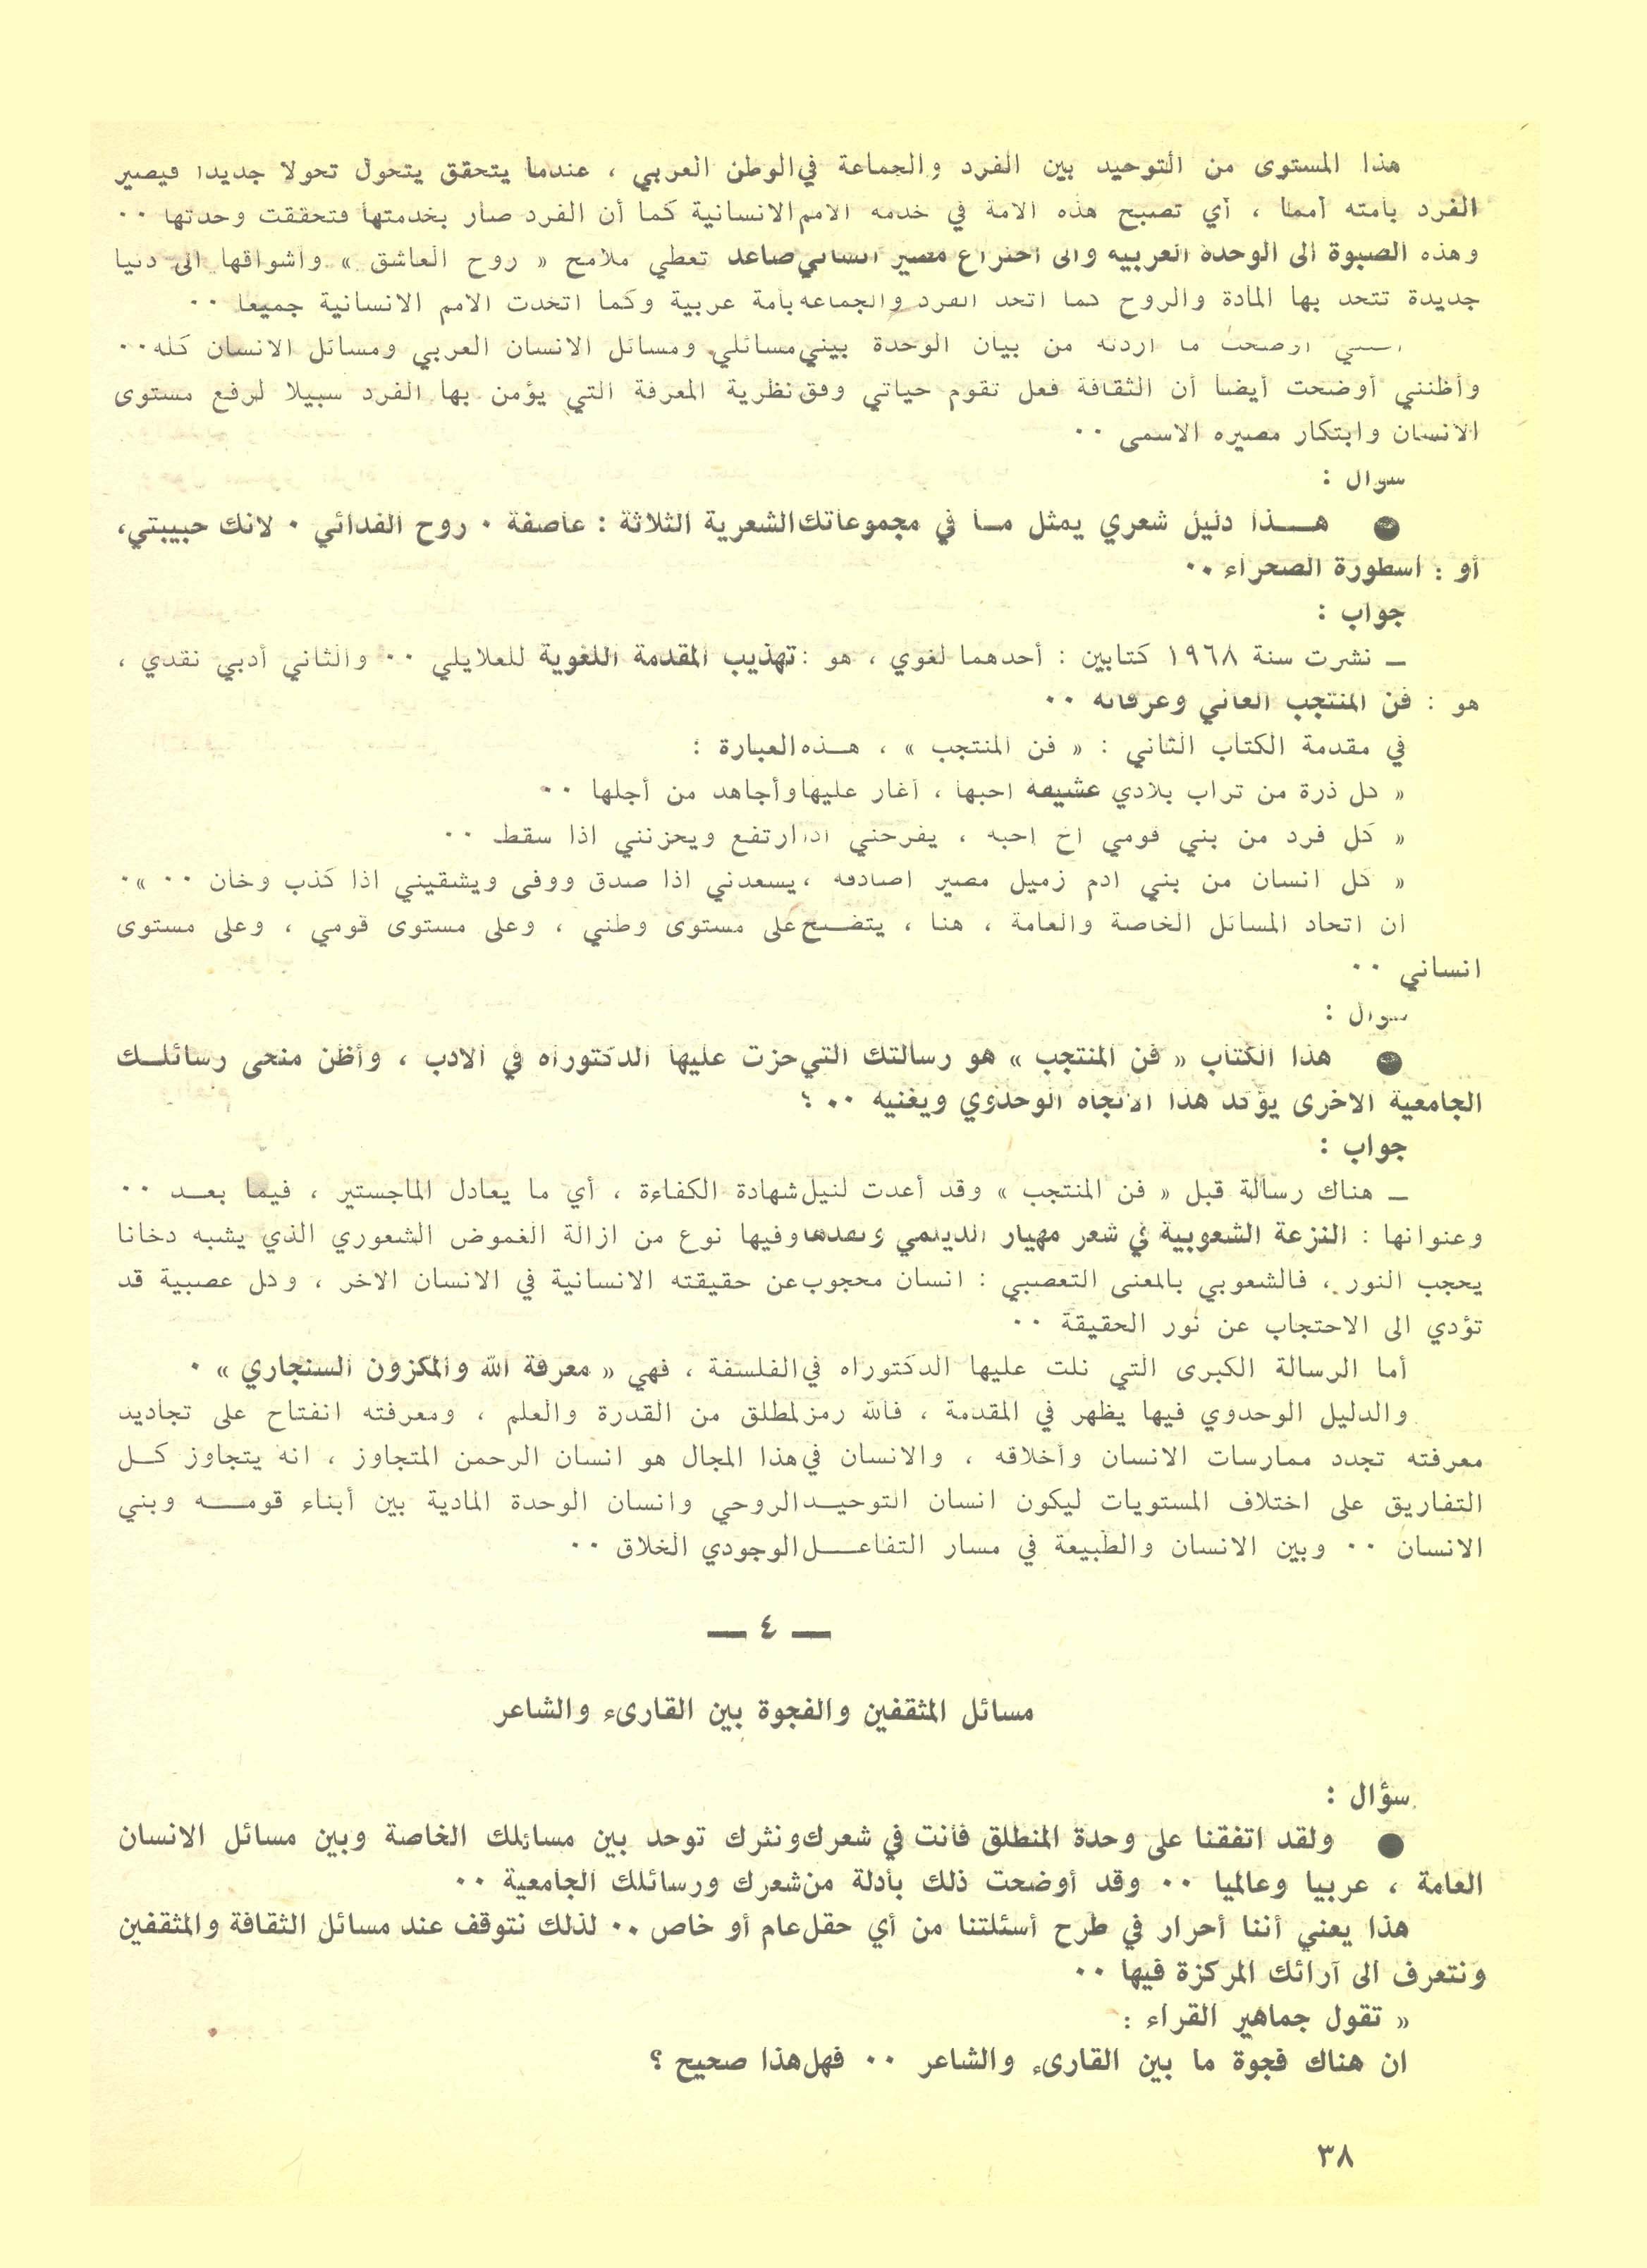 هذا المستوى من التوحيد بين الفرد والجماعة في الوطن العربي ، عندما يتحقق يتحول تحولا جديدا فيصير
الفرد بأمته أمما ، أي تصبح هذه الامة في خدمة الامم الانسانية كما أن الفرد صار بخدمتها فتحققت وحدتها ٠٠
وهذه الصبوة الى الوحدة العربية والى اختراع مصير انساني صاعد تعطي ملامح « روح العاشق » وأشواقها الى دنيا
جديدة تتحد بها المادة والروح كما اتحد الفرد والجماعة بأمة عربية وكما اتحدت الامم الانسانية جميعا ٠٠
أوضحت ما أردته من بيان الوحدة بيني مسائلي ومسائل الانسان العربي ومسائل الانسان كله ٠٠
وأظنني أوضحت أيضا أن الثقافة فعل تقوم حياتي وفق نظرية المعرفة التي يؤمن بها الفرد سبيلا لرفع مستوى
الانسان وابتكار مصيره الاسمى ٠٠
سؤال :
● هـــذا دليل شعري يمثل مــا في مجموعاتك الشعرية الثلاثة : عاصفة ٠ روح الفدائي ٠ لانك حبيبتي،
أو : أسطورة الصحراء ٠٠
جواب :
ـ نشرت سنة ١٩٦٨ كتابين : أحدهما لغوي ، هو : تهذيب المقدمة اللغوية للعلايلي ٠٠ والثاني أدبي نقدي ،
هو : فن المنتجب العاني وعرفانه ٠٠
في مقدمة الكتاب الثاني : « فن المنتجب » ، هــذه العبارة :
« كل ذرة من تراب بلادي عشيقة أحبها ، أغار عليها وأجاهد من أجلها ٠٠
« كل فرد من بني قومي أخ أحبه ، يفرحني اذا ارتفع ويحزنني اذا سقط ٠٠
« كل انسان من بني آدم زميل مصير أصادقه ، يسعدني اذا صدق ووفى ويشقيني اذا كذب وخان ٠٠ »٠
ان اتحاد المسائل الخاصة والعامة ، هنا ، يتضــح على مستوى وطني ، وعلى مستوى قومي ، وعلى مستوى
انساني ٠٠
سؤال :
● هذا الكتاب « فن المنتجب » هو رسالتك التي حزت عليها الدكتوراه في الادب ، وأظن منحى رسائلــك
الجامعية الاخرى يؤكد هذا الاتجاه الوحدوي ويغنيه ٠٠ ؟
جواب :
ـ هناك رسالة قبل « فن المنتجب » وقد أعدت لنيل شهادة الكفاءة ، أي ما يعادل الماجستير ، فيما بعــد ٠٠
وعنوانها : النزعة الشعوبية في شعر مهيار الديلمي ونقدها وفيها نوع من ازالة الغموض الشعوري الذي يشبه دخانا
يحجب النور ، فالشعوبي بالمعنى التعصبي : انسان محجوب عن حقيقته الانسانية في الانسان الاخر ، وكل عصبية قد
تؤدي الى الاحتجاب عن نور الحقيقة ٠٠
أما الرسالة الكبرى التي نلت عليها الدكتوراه في الفلسفة ، فهي « معرفة الله والمكزون السنجاري » ٠
والدليل الوحدوي فيها يظهر في المقدمة ، فالله رمز لمطلق من القدرة والعلم ، ومعرفته انفتاح على تجاديد
معرفته تجدد ممارسات الانسان وأخلاقه ، والانسان في هذا المجال هو انسان الرحمن المتجاوز ، انه يتجاوز كــل
التفاريق على اختلاف المستويات ليكون انسان التوحيــد الروحي وانسان الوحدة المادية بين أبناء قومـــه وبني
الانسان ٠٠ وبين الانسان والطبيعة في مسار التفاعـــل الوجودي الخلاق ٠٠
— ٤ —
مسائل المثقفين والفجوة بين القارىء والشاعر
سؤال :
● ولقد اتفقنا على وحدة المنطلق فأنت في شعرك ونثرك توحد بين مسائلك الخاصة وبين مسائل الانسان
العامة ، عربيا وعالميا ٠٠ وقد أوضحت ذلك بأدلة من شعرك ورسائلك الجامعية ٠٠
هذا يعني أننا أحرار في طرح أسئلتنا من أي حقل عام أو خاص ٠٠ لذلك نتوقف عند مسائل الثقافة والمثقفين
ونتعرف الى آرائك المركزة فيها ٠٠
« تقول جماهير القراء :
ان هناك فجوة ما بين القارىء والشاعر ٠٠ فهل هذا صحيح ؟
٣٨